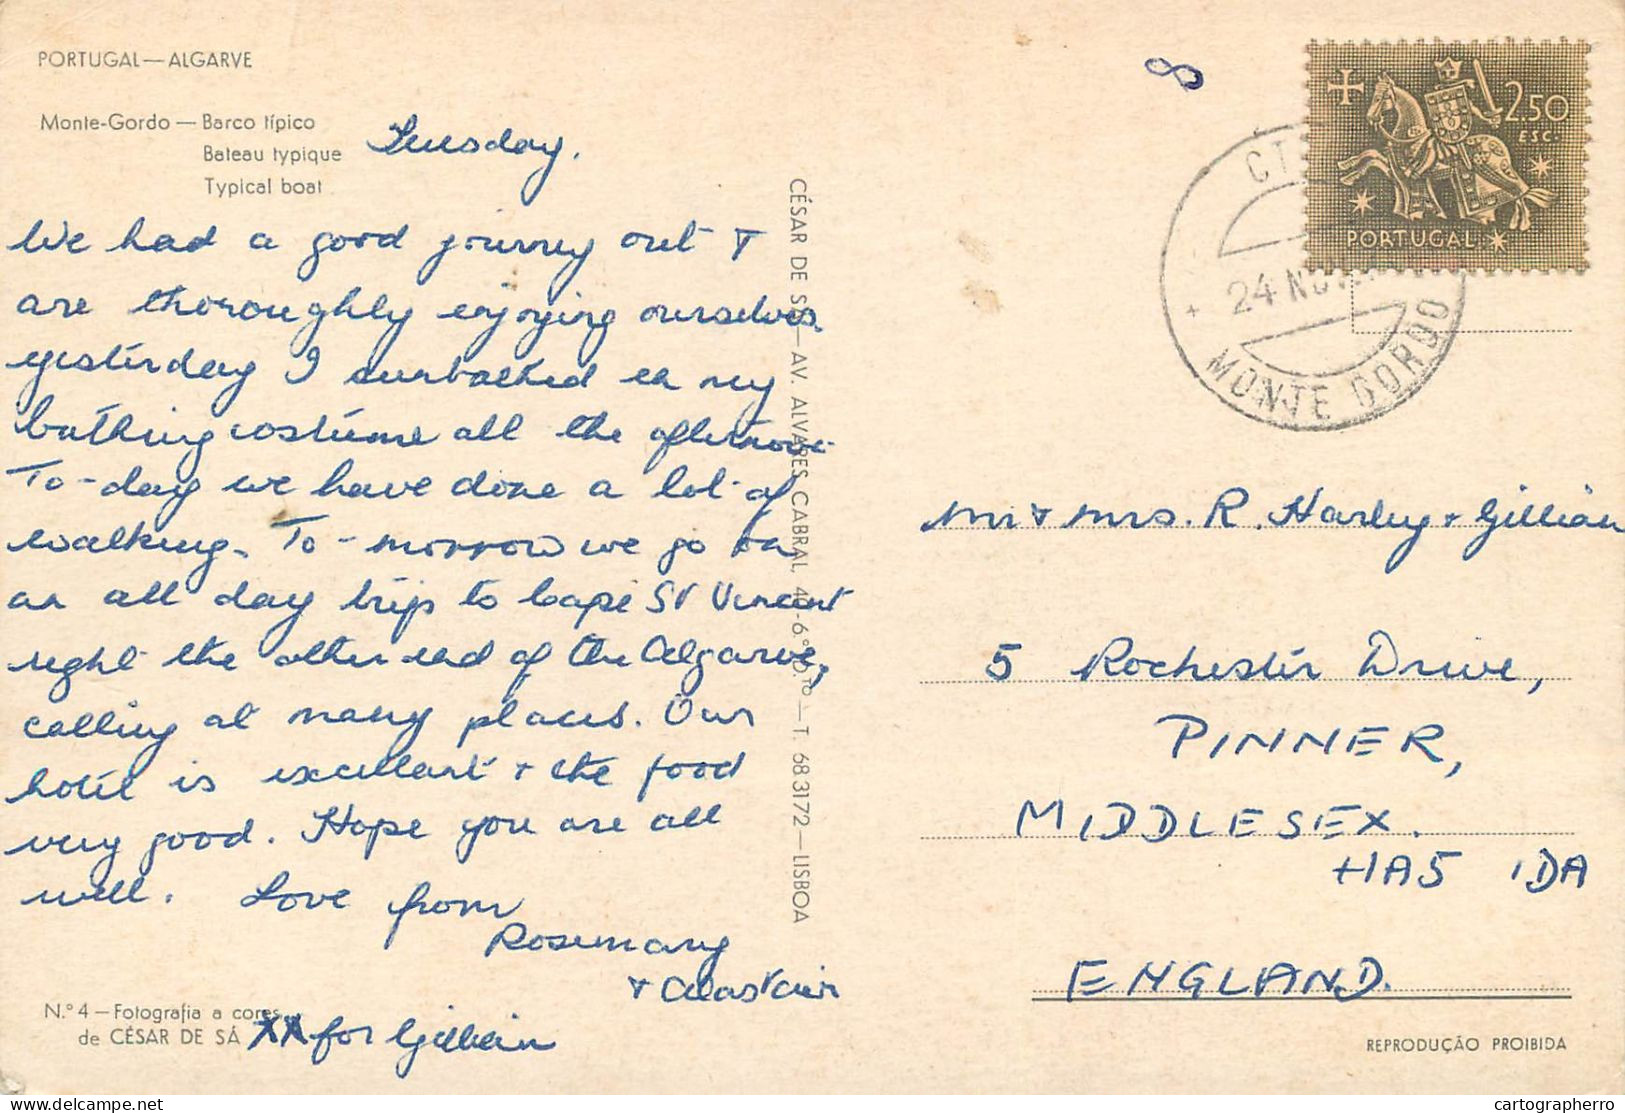 PORTUGAL—ALGARVE
Monte-Gordo — Barco típico
Bateau typique
Typical boat
Tuesday.
We had a good journey out +
are thoroughly enjoying ourselves.
Yesterday I sunbathed in my
bathing costume all the afternoon.
To-day we have done a lot of
walking. To-morrow we go on
an all day trip to Cape St Vincent
right the other end of the Algarve,
calling at many places. Our
hotel is excellent + the food
very good. Hope you are all
well. Love from
Rosemary
+ Alastair
XX for Gillian
N.º 4 — Fotografia a cores
de CÉSAR DE SÁ
CÉSAR DE SÁ — AV. ALVARES CABRAL, — T. 683172 — LISBOA
8
2$50
ESC.
PORTUGAL
CT
24 NOV.
MONTE GORDO
Mr + Mrs. R. Harley + Gillian
5 Rochester Drive,
PINNER,
MIDDLESEX.
HA5 1DA
ENGLAND.
REPRODUÇÃO PROIBIDA
cartographerro